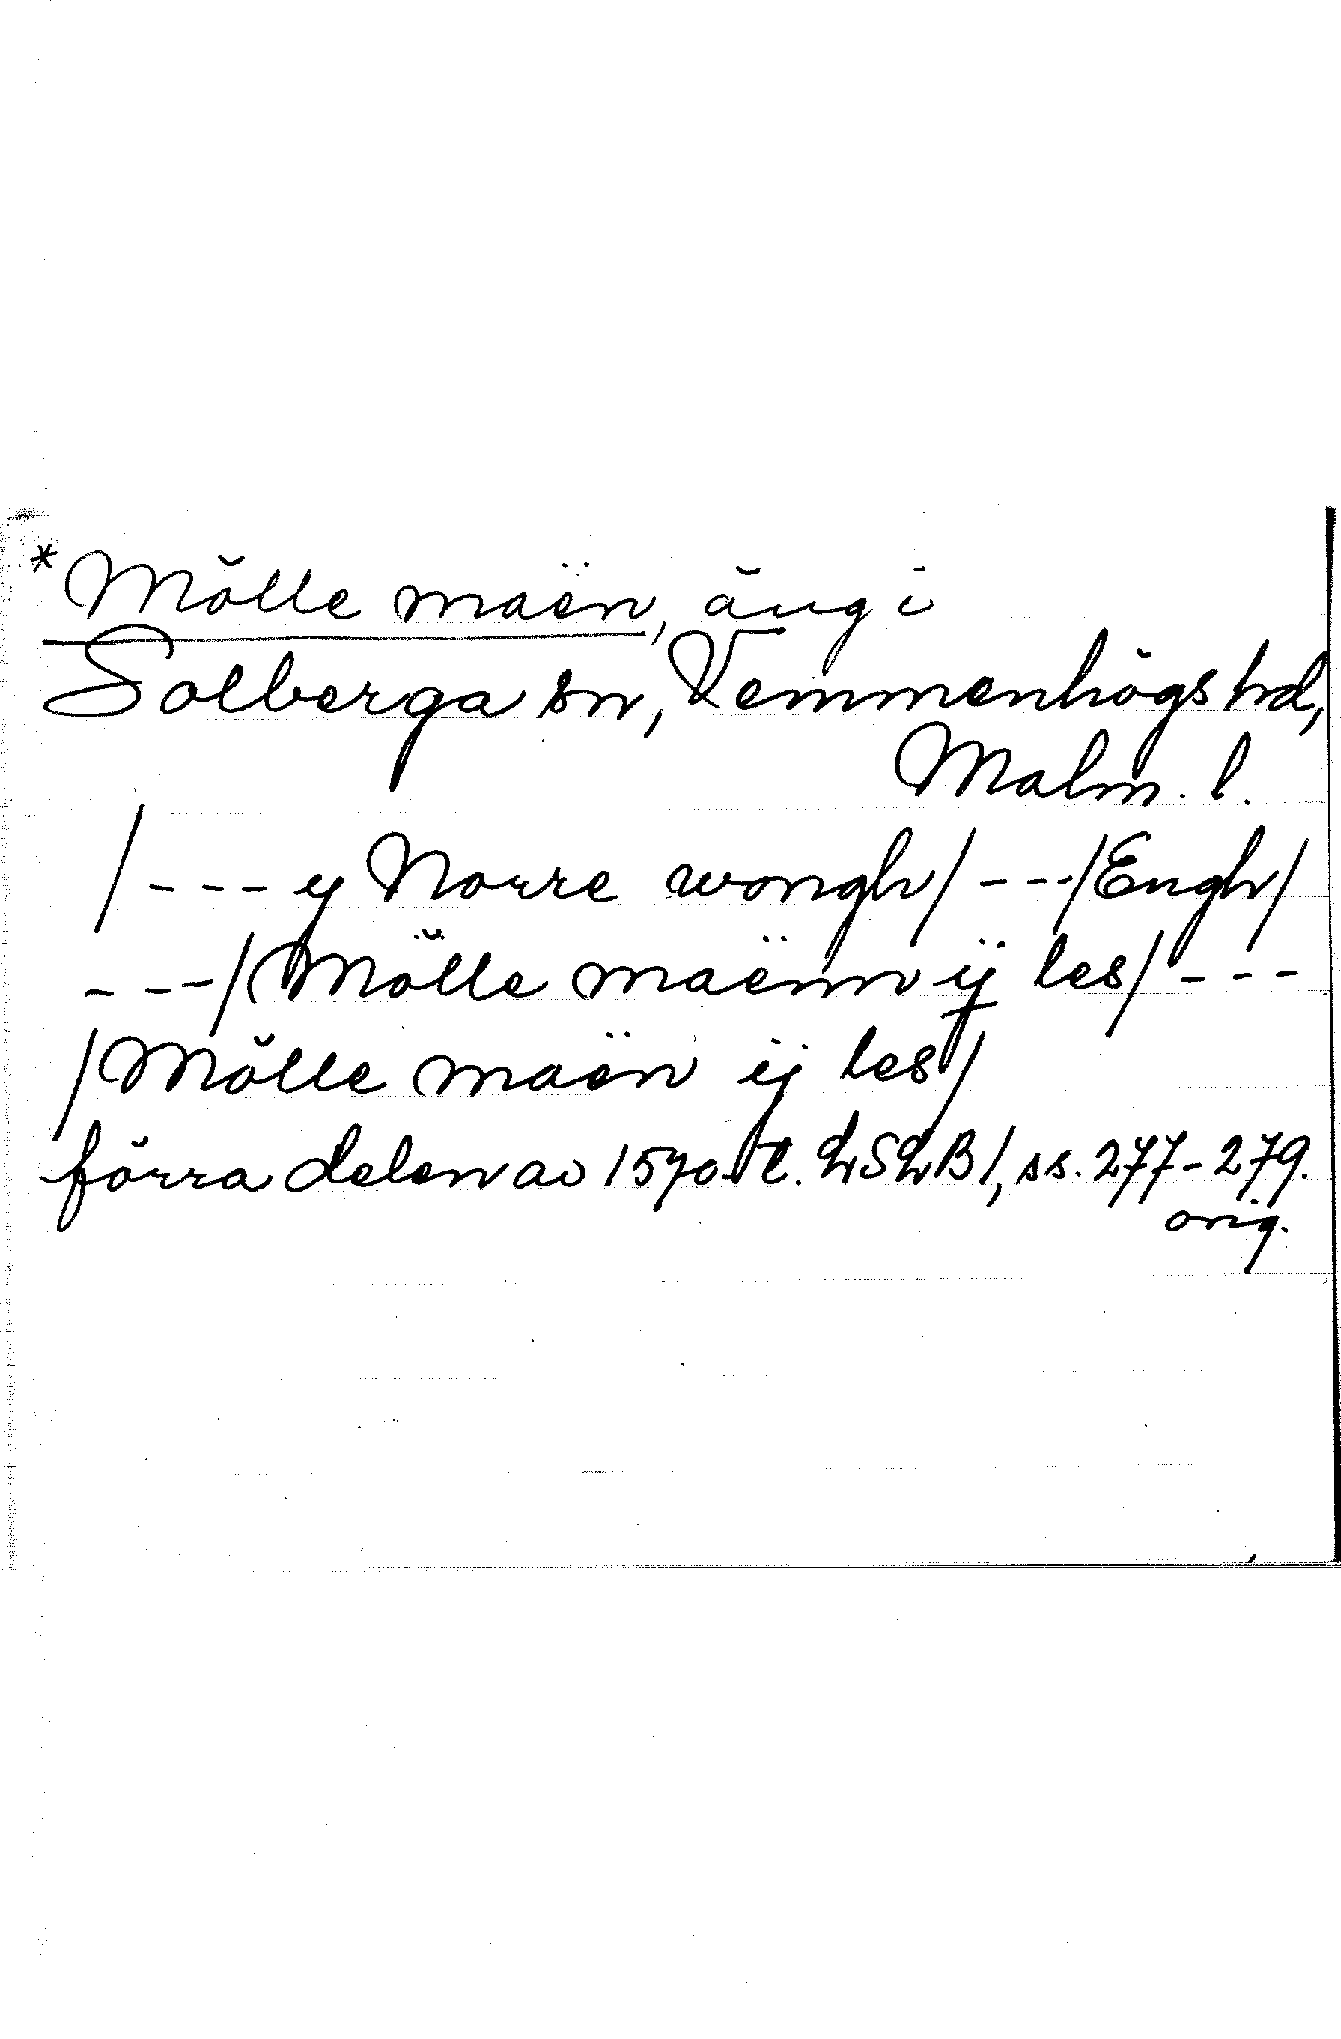 *Mölle maën, äng i
Solberga sn, Vemmenhögs hd,
Malm. l.
/--- y Norre wongh/ ---/Engh/
---/Mölle maënn ÿ les/ ---
/Mölle maën ÿ les/
förra delen av 1570-t. LSLB1, ss. 277-279.
orig.